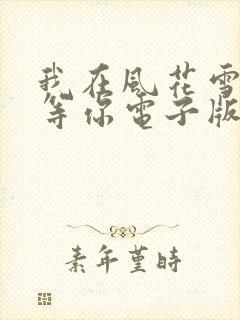 我在風花雪
等你電子版
素年堇時